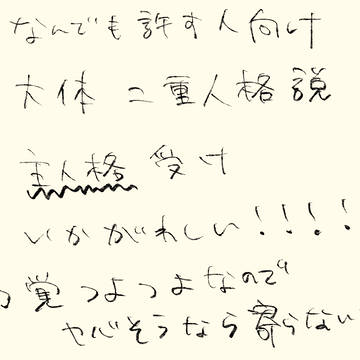 なんでも許す人向け
大体二重人格説
主人格受け
いかがわしい!!!!
覚つよつよなので
やばそうなら寄らない